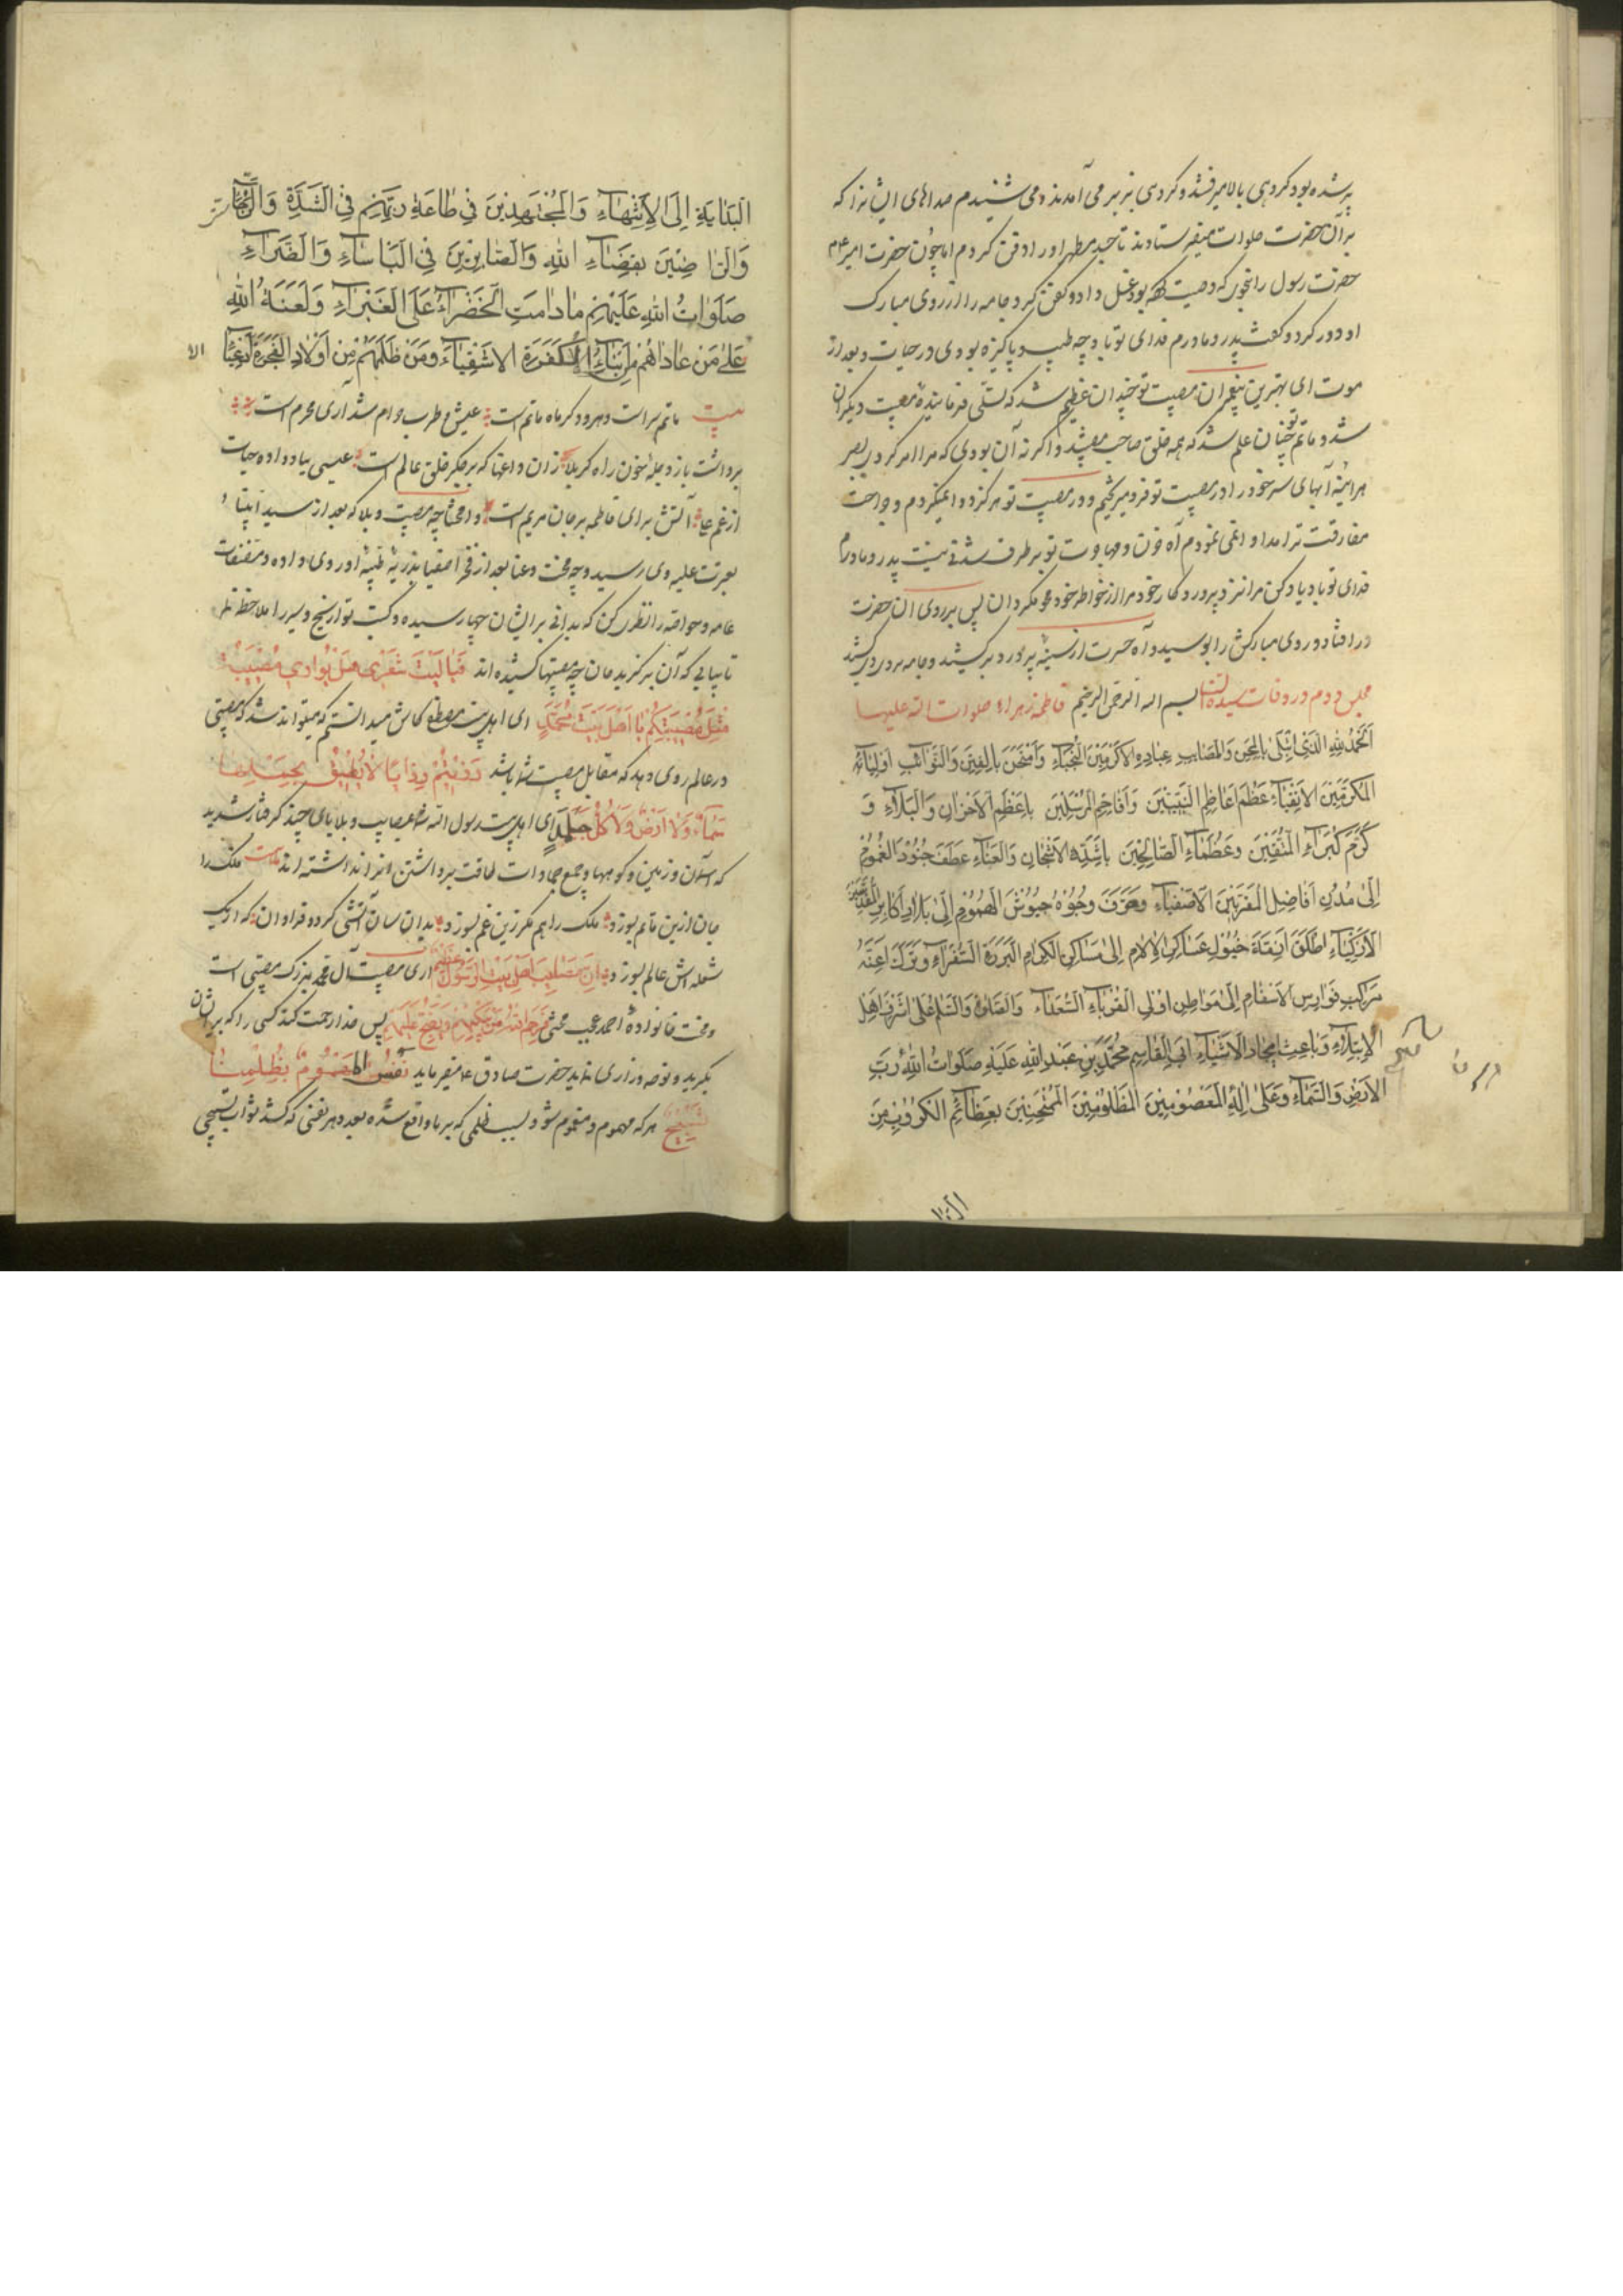 پر شده بود کروهی بالا میرفتند و کروهی بزیر می آمدند و می شنیدم صداهای ایشانرا که
بر آن حضرت صلوات میفرستادند تا جسد مطهر او را دفن کردم اما چون حضرت امیر
حضرت رسول را بنحوی که وصیت بود غسل داد و کفن کرد و جامه را از روی مبارک
او دور کرد و کفت پدر و مادرم فدای تو باد چه طیب و پاکیزه بودی در حیات و بعد از
موت ای بهترین پیغمبران مصیبت تو چندان عظیم شد که تسلی فرماینده مصیبت دیکران
شد و ماتم تو چنان علم شد که همه خلق صاحب مصیبتند و اکر نه آن بودی که مرا امر کردی بصبر
هراینه آبهای سر خود را در مصیبت تو فرو میریختیم و درد مصیبت تو هرکز دوا نمیکردم و جراحت
مفارقت ترا مداوا نمی نمودم آه
فدای تو باد یاد کن مرا نزد پروردکار خود و مرا از خواطر خود محو مکردان پس بر روی آن حضرت
در افتاد و روی مبارکش را بوسید و آه حسرت از سینه پر درد برکشید و جامه بر روی کشید
مجلس دوم در وفات سیدة النسا بسم الله الرحمن الرحیم فاطمه زهراء صلوات الله علیها
اَلْحَمْدُ لِلّهِ الَّذی ابْتَلی بِالْمِحَنِ وَالْمَصائِبِ عِبادِهِ الاَکْرَمینَ النُّجَباءِ وَامْتَحَنَ بِالْفِتَنِ وَالنَّوائِبِ اَوْلِیائِهِ
الْمُکَرَّمینَ الاَتْقِیاءِ عَظَّمَ اَعاظِمَ النَّبِیّینَ وَ اَفاخِمَ الْمُرْسَلینَ بِاَعْظَمِ الاَحْزانِ وَالْبَلاءِ وَ
کَرَّمَ کُبَراءَ الْمُتَّقینَ وَ عُظَماءَ الصّالِحینَ بِاَشَدِّ الاَشْجانِ وَالْعَناءِ عَطَفَ جُنُودَ الْغُمُومِ
اِلی مُدُنِ اَفاضِلِ الْمُقَرَّبینَ الاَصْفِیاءِ وَ صَرَفَ وُجُوهَ جُیُوشِ الْهُمُومِ اِلی بِلادِ اَکابِرِ
الاَزْکِیاءِ اَطْلَقَ خُیُولِ عَساکِرِ الآلامِ اِلی مَساکِنِ الْکِرامِ الْبَرَرَةِ السُّفَراءِ وَ تَرَکَ اَعِنَّةَ
مَراکِبِ فَوارِسِ الاَسْقامِ اِلی مَواطِنِ اُولِی الْقُرَباءِ السُّعَداءِ وَالصَّلوةُ وَالسَّلامُ عَلی اَشْرَفِ اَهْلِ
الاِبْتِلاءِ وَ باعِثِ ایجادِ الاَشْیاءِ اَبِی الْقاسِمِ مُحَمَّدِ بْنِ عَبْدِ اللهِ عَلَیْهِ صَلَواتُ اللهِ رَبِّ
الاَرْضِ وَالسَّماءِ وَ عَلی الِهِ الْمَعْصُومینَ الْمَظْلُومینَ الْمُمْتَحَنینَ بِعَظائِمِ الْکُرُوبِ مِنَ
الْبِدایَةِ اِلَی الاِنْتِهاءِ وَالْمُجْتَهِدینَ فی طاعَةِ رَبِّهِمْ فِی الشِّدَّةِ وَالرَّخاءِ
وَالرّاضینَ بِقَضاءِ اللهِ وَالصّابِرینَ فِی الْبَأساءِ وَالضَّرّاءِ
صَلَواتُ اللهِ عَلَیْهِمْ مادامَتِ الْخَضْراءُ عَلَی الْغَبْراءِ وَ لَعْنَةُ اللهِ
عَلی مَنْ عاداهُمْ مِنْ اَبْناءِ الْکَفَرَةِ الاَشْقِیاءِ وَ مَنْ ظَلَمَهُمْ مِنْ اَوْلادِ الْفَجَرَةِ
بیت ماتم سراست دهر و دکر ماه ماتم است عیش و طرب حرام شد آری محرم است
برداشت باز دجله خون راه کربلا زان داغها که بر جکر خلق عالم است عیسی بباد داده حیات
از غم آتش برای فاطمه بر جان مریم است وا محنتا چه مصیبت و بلا که بعد از سید انبیا
بعترت علیه وی رسید و چه محنت و عنا بعد از فخر اصفیا بذریه طیبه او روی داده
عامه و خواصه را نظر کن که بدانی بر ایشان چها رسیده و کتب تواریخ و سیر را ملاحظه نما
تا بیابی که آن برکزیدکان چه مصیبتها کشیده اند فَیا لَیْتَ شِعْری هَلْ بِوادی مُصیبَةٌ
مِثْلُ مُصیبَتِکُمْ یا اَهْلَ بَیْتِ مُحَمَّدٍ ای اهل بیت مصطفی کاش میدانستم که میتواند شد که مصیبتی
در عالم روی دهد که مقابل مصیبت شما باشد رُزِیتُمْ رَزایا لا یُطیقُ بِحَمْلِها
سَماءٌ وَلا اَرْضٌ وَلا کُلُّ جَلْمَدٍ ای اهل بیت رسول الله شما بمصایب و بلایای چند کرفتار شدید
که آسمان و زمین و کوهها و جمیع جمادات طاقت برداشتن آنرا نداشته اند فلک را
جان ازین ماتم بسوزد ملک را هم مکر زین غم بسوزد بدان سان آتشی کردد فراوان که از یک
شعله اش عالم بسوزد اِنَّ مَصائِبَ اَهْلِ بَیْتِ الرَّسُولِ عَظیمٌ آری مصیبت آل محمد بزرک مصیبتی است
و محنت خانواده احمد عجب محنتی فَرَحِمَ اللهُ مَنْ بَکَیهُمْ وَ یَضِجُّ عَلَیْهِمْ پس خدا رحمت کند کسی را که بر ایشان
بکرید و نوحه و زاری نماید حضرت صادق ع میفرماید نَفَسُ الْمَهْمُومِ بِظُلْمِنا
تَسْبیحٌ هر که مهموم و مغموم شود بسبب ظلمی که بر ما واقع شده بعدد هر نفسی که کشد ثواب تسبیحی